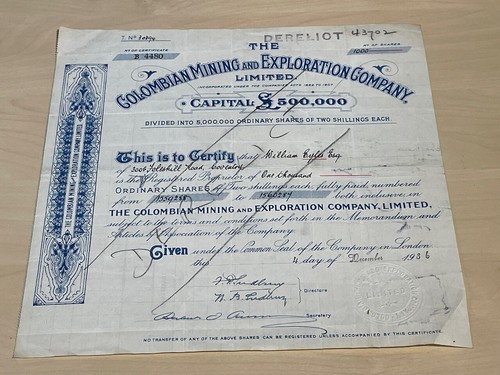 T. No
DERELICT 43702
No OF CERTIFICATE
B 4480
No OF SHARES
1000
THE
COLOMBIAN MINING AND EXPLORATION COMPANY,
LIMITED.
INCORPORATED UNDER THE COMPANIES ACTS 1862 TO 1907
CAPITAL £500,000
DIVIDED INTO 5,000,000 ORDINARY SHARES OF TWO SHILLINGS EACH.
THE COLOMBIAN MINING AND EXPLORATION COMPANY, LIMITED
This is to Certify that William Esq
of Road, Coventry
is the Registered Proprietor of One thousand
ORDINARY SHARES of Two shillings each, fully paid, numbered
from to both inclusive in
THE COLOMBIAN MINING AND EXPLORATION COMPANY, LIMITED,
subject to the terms and conditions set forth in the Memorandum and
Articles of Association of the Company.
Given under the Common Seal of the Company in London
this 4 day of December 1936
Directors
Secretary
NO TRANSFER OF ANY OF THE ABOVE SHARES CAN BE REGISTERED UNLESS ACCOMPANIED BY THIS CERTIFICATE.